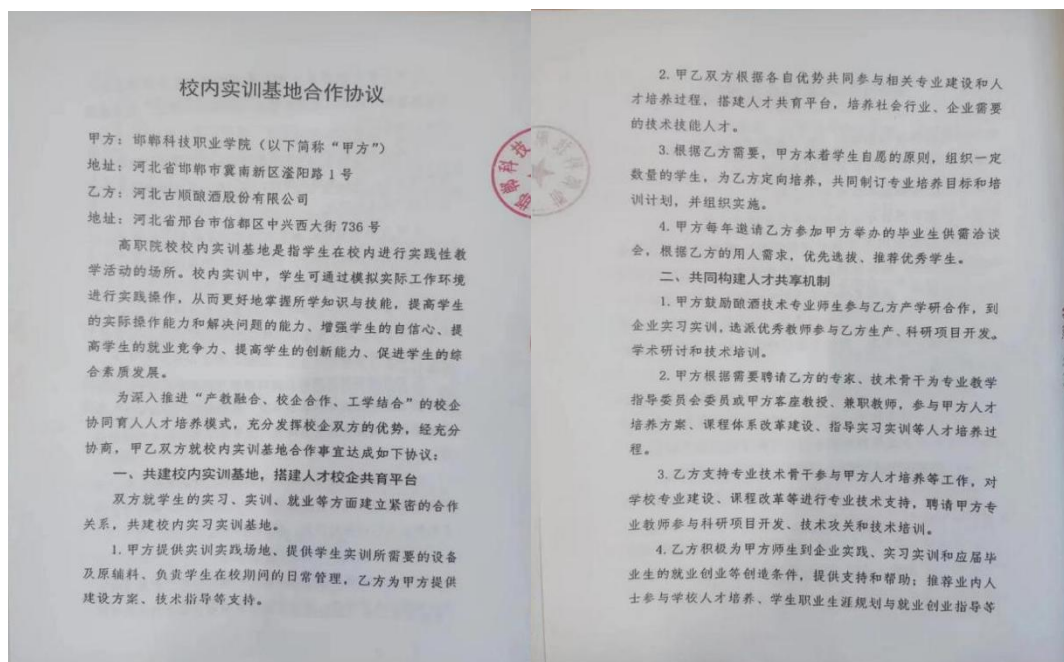 校内实训基地合作协议
甲方：邯郸科技职业学院（以下简称“甲方”）
地址：河北省邯郸市冀南新区滏阳路1号
乙方：河北古顺酿酒股份有限公司
地址：河北省邢台市信都区中兴西大街736号
高职院校校内实训基地是指学生在校内进行实践性教
学活动的场所。校内实训中，学生可通过模拟实际工作环境
进行实践操作，从而更好地掌握所学知识与技能，提高学生
的实际操作能力和解决问题的能力、增强学生的自信心、提
高学生的就业竞争力、提高学生的创新能力、促进学生的综
合素质发展。
为深入推进“产教融合、校企合作、工学结合”的校企
协同育人人才培养模式，充分发挥校企双方的优势，经充分
协商，甲乙双方就校内实训基地合作事宜达成如下协议：
一、共建校内实训基地，搭建人才校企共育平台
双方就学生的实习、实训、就业等方面建立紧密的合作
关系，共建校内实习实训基地。
1.甲方提供实训实践场地、提供学生实训所需要的设备
及原辅料、负责学生在校期间的日常管理，乙方为甲方提供
建设方案、技术指导等支持。
邯郸科技
2.甲乙双方根据各自优势共同参与相关专业建设和人
才培养过程，搭建人才共育平台，培养社会行业、企业需要
的技术技能人才。
3.根据乙方需要，甲方本着学生自愿的原则，组织一定
数量的学生，为乙方定向培养，共同制订专业培养目标和培
训计划，并组织实施。
4.甲方每年邀请乙方参加甲方举办的毕业生供需洽谈
会，根据乙方的用人需求，优先选拔、推荐优秀学生。
二、共同构建人才共享机制
1.甲方鼓励酿酒技术专业师生参与乙方产学研合作，到
企业实习实训，选派优秀教师参与乙方生产、科研项目开发。
学术研讨和技术培训。
2.甲方根据需要聘请乙方的专家、技术骨干为专业教学
指导委员会委员或甲方客座教授、兼职教师，参与甲方人才
培养方案、课程体系改革建设、指导实习实训等人才培养过
程。
3.乙方支持专业技术骨干参与甲方人才培养等工作，对
学校专业建设、课程改革等进行专业技术支持，聘请甲方专
业教师参与科研项目开发、技术攻关和技术培训。
4.乙方积极为甲方师生到企业实践、实习实训和应届毕
业生的就业创业等创造条件，提供支持和帮助；推荐业内人
士参与学校人才培养、学生职业生涯规划与就业创业指导等